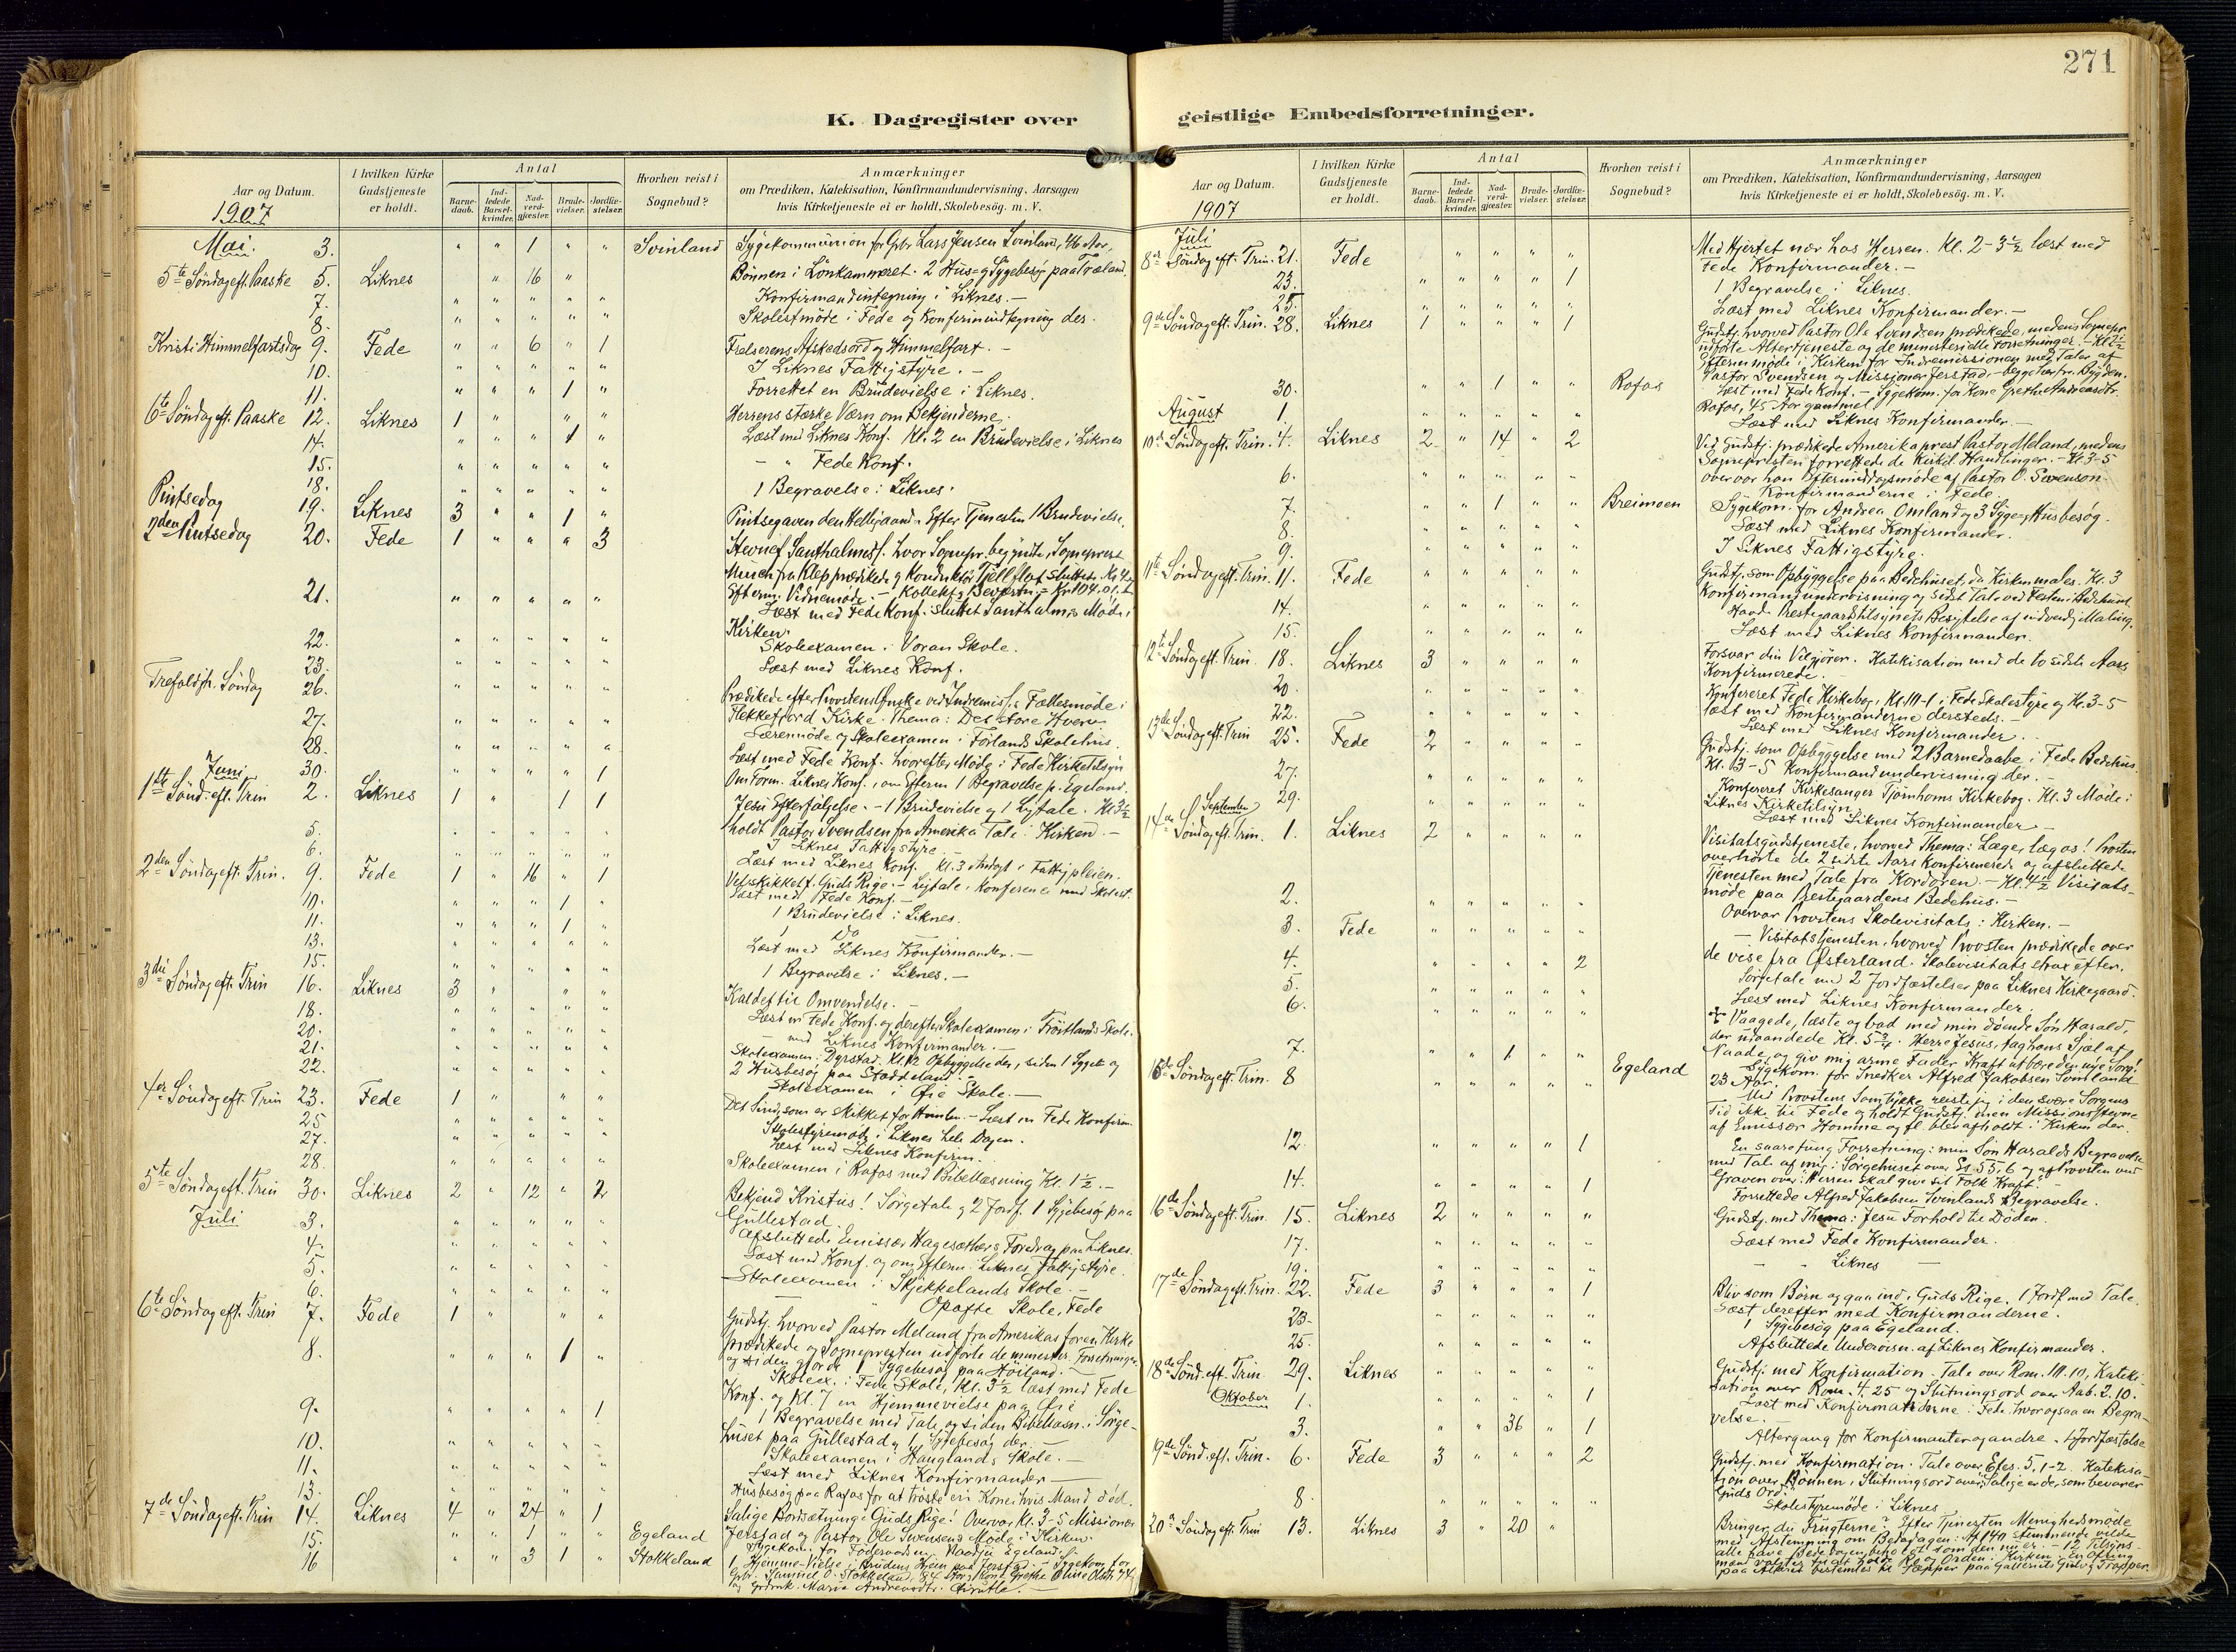 271
K. Dagregister over
geistlige Embedsforretninger.
Aar og Datum.
I hvilken Kirke Gudstjeneste er holdt.
Antal
Barnedaab.
Indledede Barselkvinder.
Nadverdgjester.
Brudevielser.
Jordfæstelser.
Hvorhen reist i Sognebud?
Anmærkninger
om Prædiken, Katekisation, Konfirmandundervisning, Aarsagen
hvis Kirketjeneste ei er holdt, Skolebesög. m. V.
1907
Mai. 3. " " 1 " " Svinland Sygekommunion for Gbr. Lars Jensen Svinland, 46 Aar,
5te Söndag eft. Paaske 5. Liknes " 16 " Bönnen i Lönkammeret. 2 Hus- og Sygebesög paa Træland.
7. " " " " " Konfirmandintegning i Liknes. —
8. " " " " " Skolestmöde i Fede og Konfirmindtegning der.
Kristi Himmelfartsdag 9. Fede " " 6 " 1 Frelserens Afskedsord og Himmelfart. —
10. " " " " " I Liknes Fattigstyre. —
11. " " " 1 " Forrettet en Brudevielse i Liknes.
6te Söndag eft. Paaske 12. Liknes 1 " " " Herrens stærke Værn om Bekjenderne.
14. " " " 1 " Læst med Liknes Konf. Kl. 2 en Brudevielse i Liknes
15. " " " " " — " Fede Konf.
18. " " " " " 1 Begravelse i Liknes.
Pintsedag 19. Liknes 3 " " 1 " Pintsegaven den Helligaand. Efter Tjenesten 1 Brudevielse.
2den Pintsedag 20. Fede 1 " " " 3 Stevnef. Santhalmis. hvor Sognepr. begyndte, Sogneprest
Munch fra Klep prædikede og Konduktör Tjellflaat sluttede. Kl 4
Efterm. Vidnemöde. —
21. " " " " " Læst med Fede Konf. sluttet Santhalmis Möde i
Kirken.
22. " " " " " Skoleexamen i Voran Skole.
23. " " " " " Læst med Liknes Konf.
Trefoldigh. Söndag 26. " " " " " Prædikede efter Provstens Önske ved Indremis. Fællesmöde i
Flekkefjord Kirke. Thema: Det store Hvem
27. " " " " " Lærermöde og Skoleexamen i Förlands Skolehus.
28. " " " " " Læst med Fede Konf. hvorefter Möde i Fede Kirketilsyn
30. " " " " 1 Om Form. Liknes Konf., om Efterm 1 Begravelse p. Egeland.
Juni
1ste Sönd. eft. Trin 2. Liknes 1 " 1 1 Jesu Efterfölgelse. — 1 Brudevielse og 1 Ligtale. Kl 3½
holdt Pastor Svendsen fra Amerika Tale i Kirken. —
5. " " " " " I Liknes Fattigstyre. —
6. " " " " " Læst med Liknes Konf. Kl. 3 Andagt i Fattigpleien.
2den Söndag eft. Trin. 9. Fede 1 " 16 " 1 Velskikket f. Guds Rige. — Ligtale, Konference med Skolest.
10. " " " 1 " Læst med Fede Konf. —
1 Brudevielse i Liknes.
11. " " " 1 " 1 Do
13. " " " " " Læst med Liknes Konfirmander. —
15. " " " " " 1 Begravelse i Liknes. —
3die Söndag eft. Trin 16. Liknes 3 " " " Kaldet til Omvendelse. —
18. " " " " " Læst m Fede Konf. og derefter Skoleexamen i Fröitlands Skole.
20. " " " " " — med Liknes Konfirmander. —
21. " " " " " Skoleexamen i Dyrstad. Kl 12 Opbyggelse der, siden 1 Syge- og
2 Husbesög paa Staddeland. —
22. " " " " " Skoleexamen i Öie Skole. —
4de Söndag eft. Trin 23. Fede 1 " " " Det Sind, som er skikket for Himlen. — Læst m Fede Konfirm.
25 " " " " " Skolestyremöde i Liknes hele Dagen.
27. " " " " " Læst med Liknes Konfirm.
28. " " " " " Skoleexamen i Rafos med Bibellæsning Kl. 1½. —
5te Söndag eft. Trin 30. Liknes 2 " 12 " 2 Bekjend Kristus! Sörgetale og 2 Jordf. 1 Sygebesög paa
Gullestad.
Juli 3. " " " " " Afsluttede Emissær Hagesæthers Foredrag paa Liknes.
4. " " " " " Læst med Konf. og om Efterm. Liknes Fattigstyre.
5. " " " " " Skoleexamen i Skjekkelands Skole. —
6. " " " " " " Opofte Skole, Fede
6te Söndag eft. Trin 7. Fede 1 " " " Gudstj. hvorved Pastor Meland fra Amerikas foren. Kirke
prædikede og Sognepresten udförte de minister. Forretninger
og siden gjorde 1 Sygebesög paa Höiland. —
8. " " " 1 " Skoleex. i Fede Skole, Kl. 3½ læst med Fede
Konf. og Kl. 7 en Hjemmevielse paa Öie
9. " " " " 1 1 Begravelse med Tale, og siden Bibellæsn. i Sörge-
huset paa Gullestad og 1 Sygebesög der. —
10. " " " " " Skoleexamen i Hauglands Skole. —
11. " " " " " Læst med Liknes Konfirmander —
13. " " " " " Husbesög paa Rafos for at tröste en Kone, hvis Mand död.
7de Söndag eft. Trin 14. Liknes 4 " 24 " 1 Salige Bordsetning i Guds Rige! Overvar Kl. 3-5 Missionær
Jerstad og Pastor Ole Swensens Möde i Kirken
15. " " 1 " " Egeland Sygekom. for Föderaadsm.
16 " " 3 1 " Stokkeland 1 Hjemme-Vielse i Brudens Hjem paa Jerstad. — Sygekom. for
Gbr. Samuel O. Stokkeland, 84 Aar, Kone Grethe Oline
og Gbrk. Maria Andreasdtr.
1907
Juli
8de Söndag eft. Trin. 21. Fede " " " " Med Hjertet nær hos Herren. Kl. 2-3½ læst med
Fede Konfirmander. —
23. " " " " 1 1 Begravelse i Liknes.
25. " " " " " Læst med Liknes Konfirmander. —
9de Söndag eft. Trin. 28. Liknes 1 " " " 1 Gudstj. hvorved Pastor Ole Svendsen prædikede, medens Sognepr.
udförte Altertjeneste og de ministerielle Forretninger. — Kl 2½
Efterm möde i Kirken for Indremissionen med Taler af
Pastor Svendsen og Missionær Jerstad, — begge her fra Bygden.
30. " " 1 " " Rafos Læst med Fede Konf. — Sygekom. for Kone Grethe Andreasdtr.
Rafos, 45 Aar gammel.
August 1. " " " " " Læst med Liknes Konfirmander. —
10de Söndag eft. Trin. 4. Liknes 2 " 14 " 2 Ved Gudstj. prædikede Amerikaprest Pastor Meland, medens
Sognepresten forrettede de kirkel. Handlinger. — Kl 3-5
overvar han Eftermiddagsmöde af Pastor O. Swenson.
6. " " " " " Konfirmanderne i Fede.
7. " " 1 " " Breimoen Sygekom. for Andrea Omland og 3 Syge- og Husbesög.
8. " " " " " Læst med Liknes Konfirmander.
9. " " " " " I Liknes Fattigstyre.
11te Söndag eft. Trin. 11. Fede " " " " Gudstj. som Opbyggelse paa Bedehuset, da Kirken males. Kl. 3
Konfirmandundervisning og sidst Tale ved Festen i Bedehuset.
14. " " " " " Havde Prestegaardstilsynets Besigtelse af udvendig Maling.
15. " " " " " Læst med Liknes Konfirmander.
12te Söndag eft. Trin. 18. Liknes 3 " " " " Forsvar din Velgjörer. Katekisation med de to sidste Aars
Konfirmerede.
20. " " " " " Konfereret Fede Kirkebog, Kl. 10-1 i Fede Skolestyre og Kl. 3-5
læst med Konfirmanderne dersteds. —
22. " " " " " Læst med Liknes Konfirmander. —
13de Söndag eft. Trin 25. Fede 2 " " " " Gudstj. som Opbyggelse med 2 Barnedaabe i Fede Bedehus.
Kl. 3-5 Konfirmandundervisning der. —
27. " " " " " Konfereret Kirkesanger Tjörnhoms Kirkebog. Kl. 3 Möde i
Liknes Kirketilsyn.
29. " " " " " Læst med Liknes Konfirmander —
September
14de Söndag eft. Trin. 1. Liknes 2 " " " " Visitatsgudstjeneste, hvorved Thema: Læge, læg os! Provsten
overhörte de 2 sidste Aars Konfirmerede og afsluttede
Tjenesten med Tale fra Kordören. — Kl. 4½ Visitats-
möde paa Prestegaardens Bedehus. —
2. " " " " " Overvar Provstens Skolevisitats i Kirken. —
3. Fede " " " " " — Visitatstjenesten, hvorved Provsten prædikede over
de vise fra Österland. Skolevisitats strax efter.
4. " " " " 2 Sörgetale med 2 Jordfæstelser paa Liknes Kirkegaard.
5. " " " " " Læst med Liknes Konfirmander.
6. " " " " " Vaagede, læste og bad med min döende Sön Harald,
der udaandede Kl. 5¾. Herre Jesus, tag hans Sjæl af
Naade, og giv mig arme Fader Kraft at bære den nye Sorg!
7. " " 1 " " Egeland Sygekom. for Snedker Alfred Jakobsen Svinland
23 Aar.
15de Söndag eft. Trin. 8 " " " " " Med Provstens Samtykke reiste jeg i den svære Sorgens
Tid ikke til Fede og holdt Gudstj. men Missionsstevne
af Emissær Homme og fl. blev afholdt i Kirken der.
12. " " " " 1 En saare tung Forretning: min Sön Haralds Begravelse
med Tale af mig i Sörgehuset over Es. 55, 6 og af Provsten ved
Graven over: Herren skal give sit Folk Kraft.
14. " " " " 1 Forrettede Alfred Jakobsen Svinlands Begravelse.
16de Söndag eft. Trin. 15. Liknes 2 " " " " Gudstj. med Thema: Jesu Forhold til Döden.
17. " " " " " Læst med Fede Konfirmander.
19. " " " " " — — Liknes —
17de Söndag eft. Trin. 22. Fede 3 " " " 1 Bliv som Börn og gaa ind i Guds Rige. 1 Jordf. med Tale.
Læst derefter med Konfirmanderne.
23. " " " " " 1 Sygebesög paa Egeland.
25. " " " " " Afsluttede Undervisn. af Liknes Konfirmander.
18de Sönd. eft. Trin 29. Liknes " " " " " Gudstj. med Konfirmation. Tale over Rom. 10.10, Kateki-
sation over Rom. 4. 25 og Slutningsord over Aab. 2. 10.
Oktober 1. " " " " 1 Læst med Konfirmanderne i Fede, hvor ogsaa en Begra-
velse.
3. " " 36 " 1 Altergang for Konfirmanter og andre. 1 Jordfæstelse
19de Sönd. eft. Trin. 6. Fede 3 " " " 2 Gudstj. med Konfirmation. Tale over Efes. 5, 1-2. Katekisa-
tion over Bönnen, Slutningsord over: Salige er de, som bevarer
Guds Ord.
8. " " " " " Skolestyremöde i Liknes
20de Söndag eft. Trin 13. Liknes 3 " 20 " Bringer du Frugterne? Efter Tjenesten Menighedsmöde
med Afstemning om Bededagen. Af 140 stemmende vilde
alle have Bededagen beholdt som den nu er. — 12 Tilsyns-
mænd valgtes til at holde Ro og Orden i Kirken. En Ofring
paa Alteret bestemtes til Tæpper paa Galleriets Gulv og Trapper.